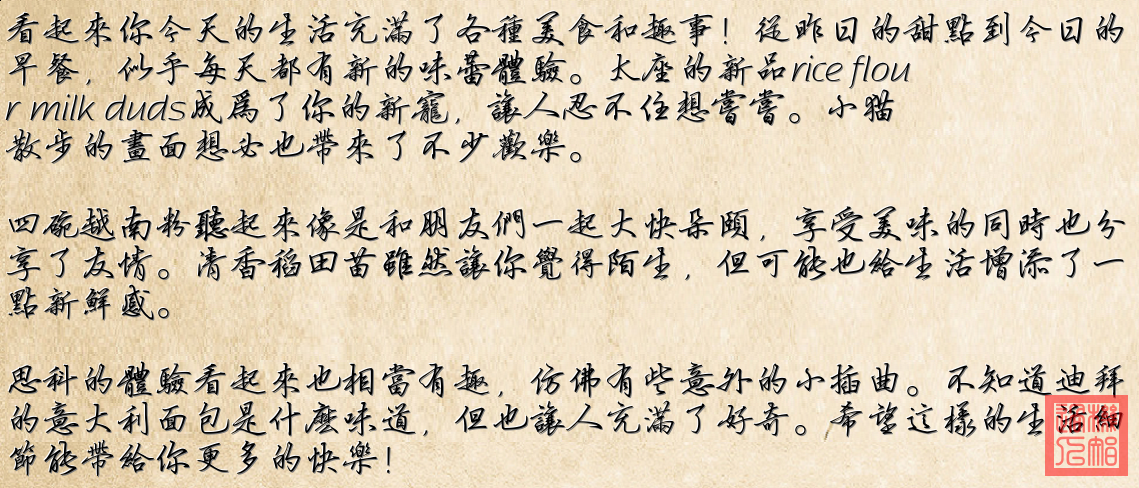 看起來你今天的生活充滿了各種美食和趣事！從昨日的甜點到今日的
早餐，似乎每天都有新的味蕾體驗。太座的新品rice flou
r milk duds成爲了你的新寵，讓人忍不住想嘗嘗。小猫
散步的畫面想必也帶來了不少歡樂。
四碗越南粉聽起來像是和朋友們一起大快朵頤，享受美味的同時也分
享了友情。清香稻田苗雖然讓你覺得陌生，但可能也給生活增添了一
點新鮮感。
思科的體驗看起來也相當有趣，仿佛有些意外的小插曲。不知道迪拜
的意大利面包是什麽味道，但也讓人充滿了好奇。希望這樣的生活細
節能帶給你更多的快樂！